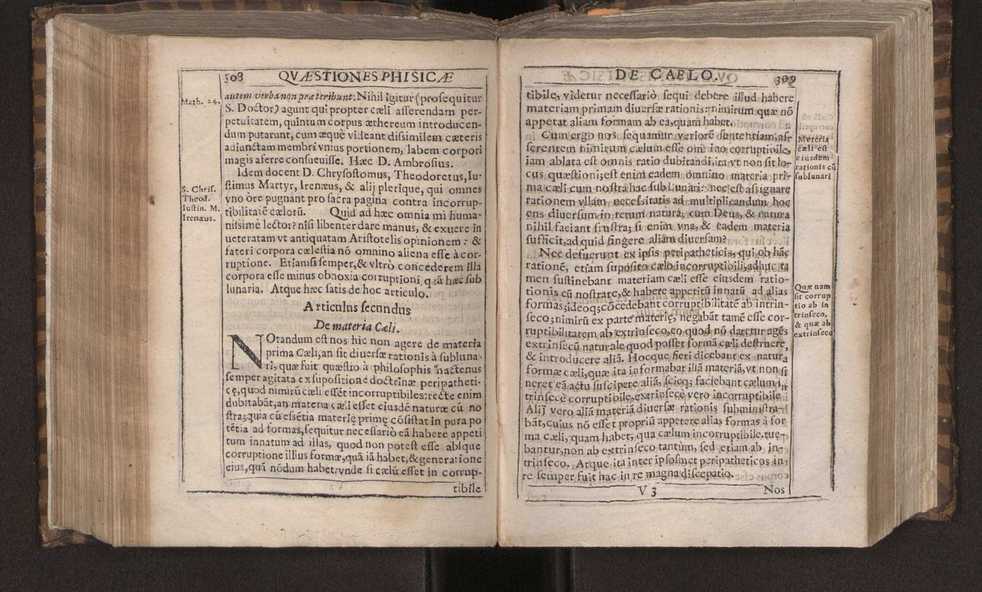 308 QVÆSTIONES PHISICÆ
Math. 24.
autem verba non præteribunt: Nihil igitur (prosequitur
S. Doctor) agunt qui propter cæli asserendam per-
petuitatem, quintum corpus æthereum introducen-
dum putarunt, cum æquè videant disimilem cæteris
adiunctam membri vnius portionem, labem corpori
magis aferre consueuisse. Hæc D. Ambrosius.
Idem docent D. Chrysostomus, Theodoretus, Iu-
stinus Martyr, Irenæus, & alij plerique, qui omnes
vno ore pugnant pro sacra pagina contra incorrup-
tibilitatē cælorū. Quid ad hæc omnia mi huma-
nissime lector? nisi libenter dare manus, & exuere in
ueteratam vt antiquatam Aristotelis opinionem: &
fateri corpora cælestia nō omnino aliena esse à cor-
ruptione. Etiansi semper, & vltrò concederem illa
corpora esse minus obnoxia corruptioni, quā hæc sub
lunaria. Atque hæc satis de hoc articulo.
S. Chris.
Theod.
Iustin. M.
Irenæus.
Articulus secundus
De materia Cæli.
NOtandum est nos hic non agere de materia
prima Cæli, an sit diuersæ rationis à subluna-
ri, quæ fuit quæstio à philosophis hactenus
semper agitata ex supositione doctrinæ peripatheti-
cę, quod nimirū cæli essēt incorruptibiles: recte enim
dubitabāt, an materia cæli esset eiusdē naturæ cū no
stra; quia cū esētia materię primę cōsistat in pura po
tētia ad formas, sequitur necessariò eā habere appeti
tum innatum ad illas, quod non potest esse absque
corruptione illius formæ, quā iā habet, & generatione
eius, quā nōdum habet; vnde si cælū esset in corrup-
tibile
DE CAELO. 309
tibile, videtur necessariò sequi debere illud habere
materiam primam diuersæ rationis: nimirum quæ nō
appetat aliam formam ab ea, quam habet.
Cum ergo nos sequamur veriorē sententiam, asse
serentem nimirum cælum esse omnino corruptibile,
iam ablata est omnis ratio dubitandi, ita vt non sit lo-
cus quæstioni; est enim eadem omnino materia pri-
ma cæli cum nostra hac sublunari: nec est asignare
rationem vllam necessitatis ad multiplicandum hoc
ens diuersum in rerum natura, cum Deus, & natura
nihil faciant frustra; si enim vna, & eadem materia
sufficit, ad quid fingere aliam diuersam?
Materia
cæli est
eiusdem
rationis cū
sublunari
Nec defuerunt ex ipsis peripatheticis, qui ob hāc
rationē, etiam suposito cælo incorruptibili, adhuc ta
men sustinebant materiam cæli esse eiusdem ratio-
tionis cū nostrate, & habere appetitū innatū ad alias
formas; ideoq; cōcedebant corruptibilitatē ab intrin-
seco; nimirū ex parte materię, negabāt tamē esse cor-
ruptibilitatem ab extrinseco, eo quod nō daretur agēs
extrinsecū naturale quod posset formā cæli destruere,
& introducere aliā. Hocque fieri dicebant ex natura
formæ cæli, quæ ita informabat illā materiā, vt non si
neret eā actu suscipere aliā, sicq; faciebant cælum in
trinsecè corruptibile, extrinsecè vero incorruptibile.
Alij vero aliā materiā diuersæ rationis subministra-
bāt, cuius nō esset propriū appetere alias formas à for
ma cæli, quam habet, qua cælum incorruptibile tue-
bantur, non ab extrinseco tantùm, sed etiam ab in-
trinseco. Atque ita inter ipsosmet peripatheticos in
re semper fuit hac in re magna disceptatio.
Quæ nam
sit corrup
tio ab in
trinseco,
& quæ ab
extrinseco
V 3 Nos